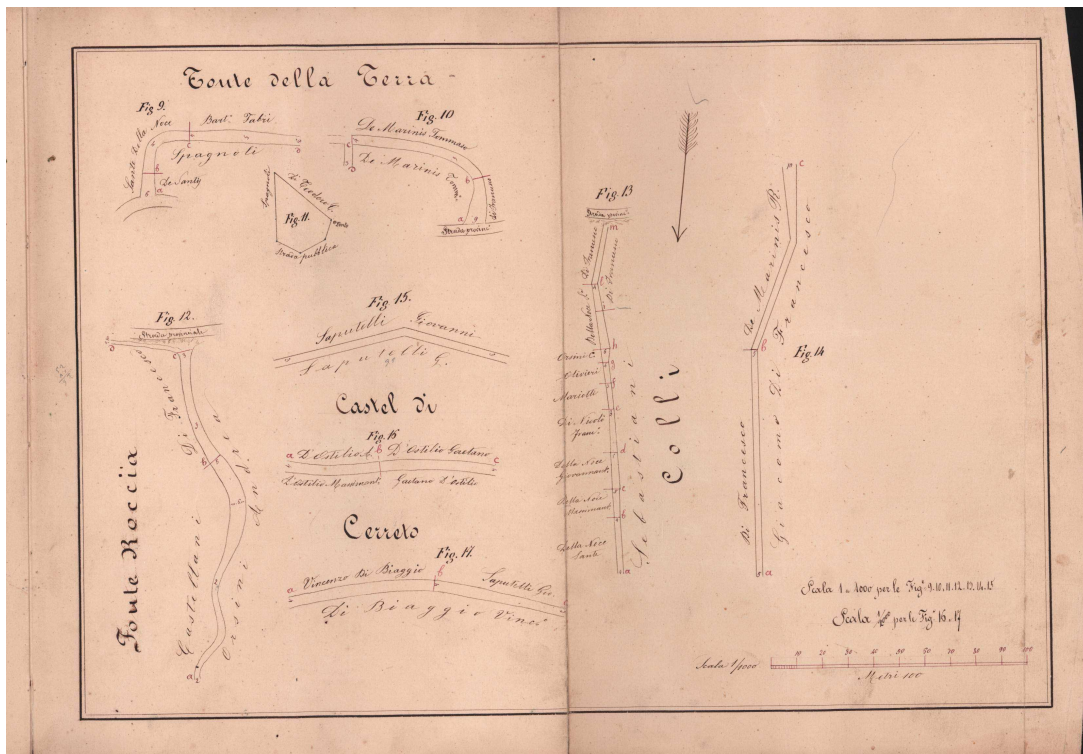 Fonte della Terra
Fig 9.
Sante Della Noce
Bart. Fabri
Spagnoli
De Santis
a
b
c
Fig. 10
De Marinis Tommaso
De Marinis Tomm.
Di Francesco
a
b
c
Strada provin.
Fig. 11.
Spagnoli
De Teodoro C.
Strada pubblica
Fig. 12.
Strada provinciale
Di Francesco
Castellani
Orsini Andrea
Fonte Roccia
Fig. 15.
Saputelli Giovanni
Saputelli G.
Castel di
Fig. 16
a D'Ostilio A. b D'Ostilio Gaetano c
D'Ostilio Mass. Ant. Gaetano D'Ostilio
Cerreto
Fig. 17.
a Vincenzo Di Biaggio b Saputelli Gio.
Di Biaggio Vinc.
Fig. 13
Strada provin.
m
Di Francesco
Di Francesco
Orsini C.
h
Olivieri
Mariotti
Di Nicola
Della Noce
Giovannant.
Della Noce
Della Noce
Sante
b
a
Sebastiani
Colli
Fig. 14
c
De Marinis R.
b
Di Francesco
Giacomo Di Francesco
a
Scala 1 a 4000 per le Fig. 9.10.11.12.13.14.15
Scala per le Fig. 16.17
Scala 1/1000
10 20 30 40 50 60 70 80 90 100
Metri 100